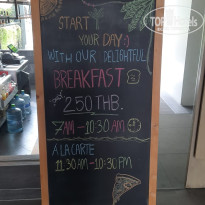 START
YOUR DAY :)
WITH OUR DELIGHTFUL
BREAKFAST
ONLY
250 THB.
7AM - 10:30 AM
A LA CARTE
11.30 AM - 10:30 PM
TOPHOTELS